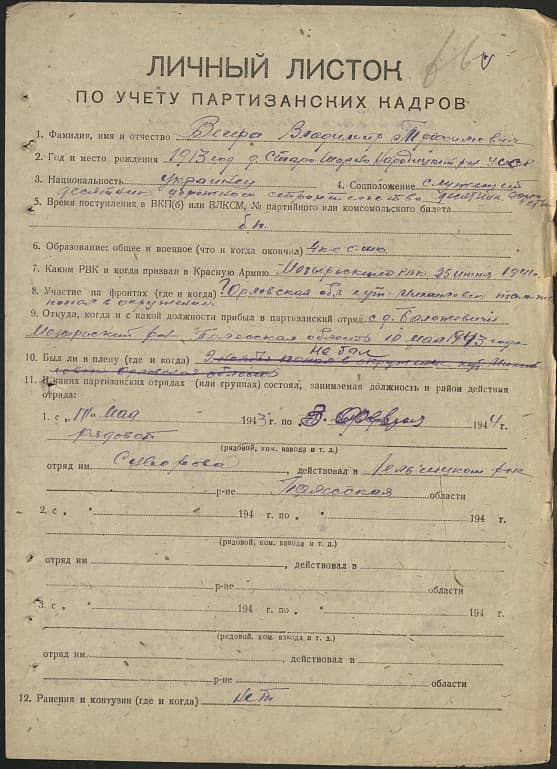 ЛИЧНЫЙ ЛИСТОК
ПО УЧЕТУ ПАРТИЗАНСКИХ КАДРОВ
1. Фамилия, имя и отчество Вегера Владимир Трофимович
2. Год и место рождения 1913 год д. Старо Народицкий р-н УССР
3. Национальность украинец 4. Соцположение служащий
десятник
5. Время поступления в ВКП(б) или ВЛКСМ, № партийного или комсомольского билета
б.п.
6. Образование: общее и военное (что и когда окончил)
7. Каким РВК и когда призван в Красную Армию Мозырьским рвк 25 июня 1941
8. Участие на фронтах (где и когда) Орловская обл хут. Михайловск там же
попал в окружение
9. Откуда, когда и с какой должности прибыл в партизанский отряд с д.
Мозырьский р-н Полесская область 10 мая 1943 года
10. Был ли в плену (где и когда) Не был
11. В каких партизанских отрядах (или группах) состоял, занимаемая должность и район действия
отряда:
1. с „10“ мая 1943 г. по 3. февраля 1944 г.
рядовой
(рядовой, ком. взвода и т. д.)
отряд им Суворова, действовал в Ельским р-не
р-не Полесская области
2. с „ “ 194 г. по „ “ 194 г.
(рядовой, ком. взвода и т. д.)
отряд им , действовал в
р-не области
3. с „ “ 194 г. по „ “ 194 г.
(рядовой, ком. взвода и т. д.)
отряд им , действовал в
р-не области
12. Ранения и контузии (где и когда) нет